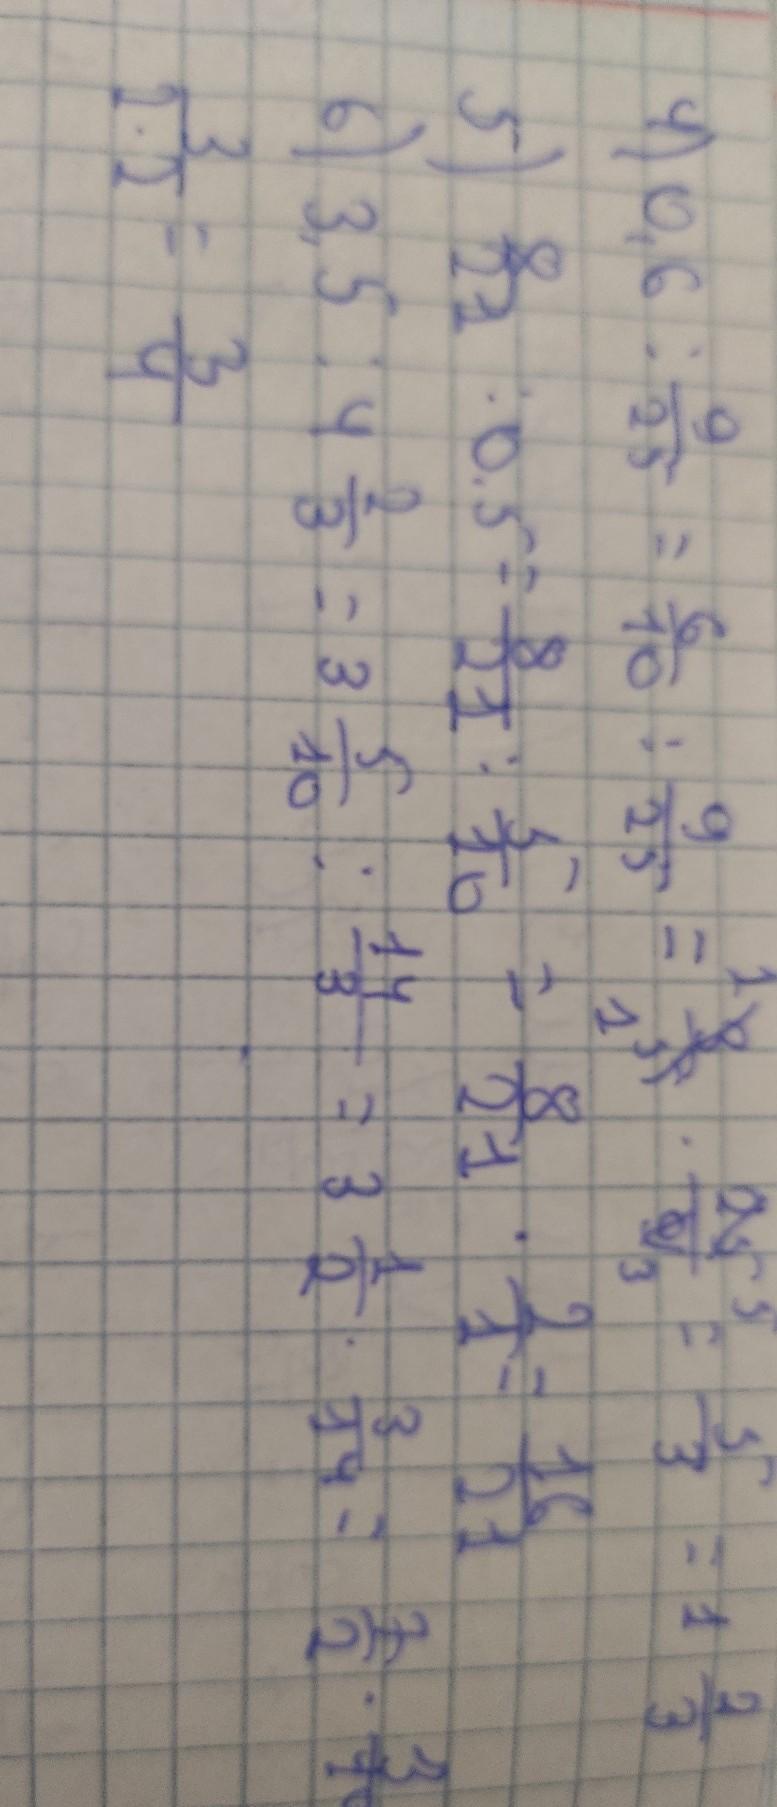 4) 0,6 : 9/25 = 6/10 : 9/25 = 6/10 · 25/9 = 5/3 = 1 2/3
5) 8/21 : 0.5 = 8/21 : 5/10 = 8/21 · 2/1 = 16/21
6) 3,5 : 4 2/3 = 3 5/10 : 14/3 = 3 1/2 · 3/14 = 7/2 ·
= 3/4